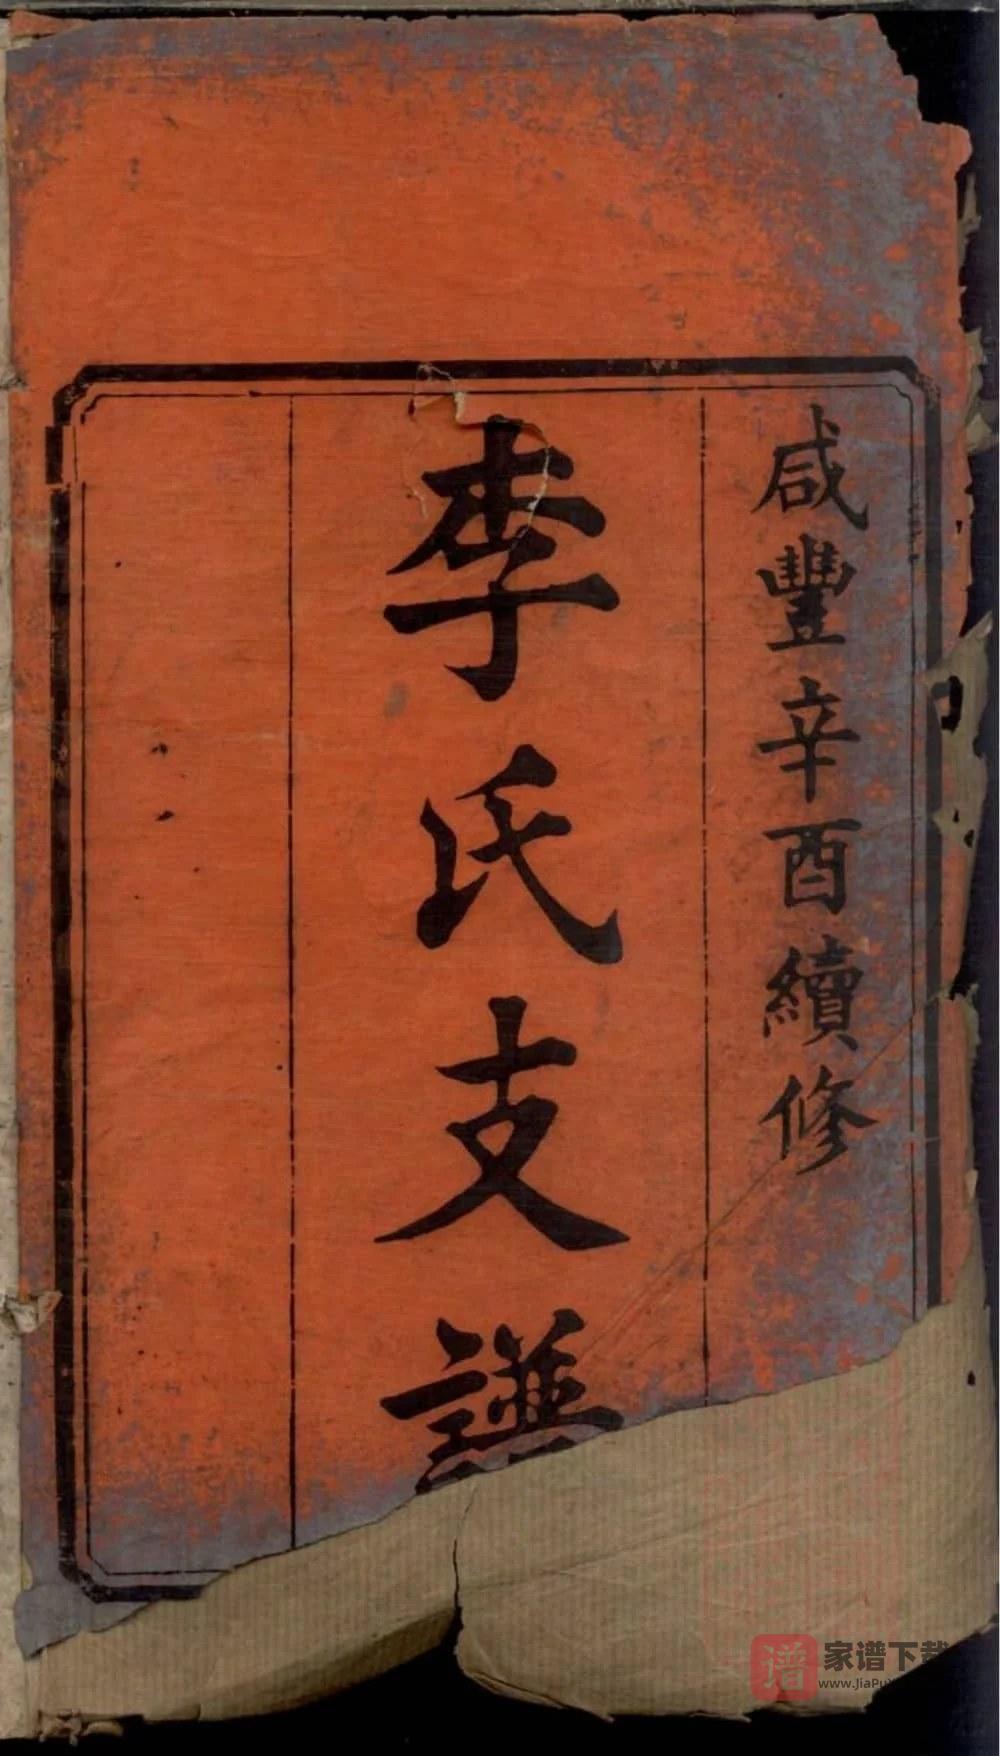 咸豐辛酉續修
李氏支譜
譜 家谱下载
www.JiaPu